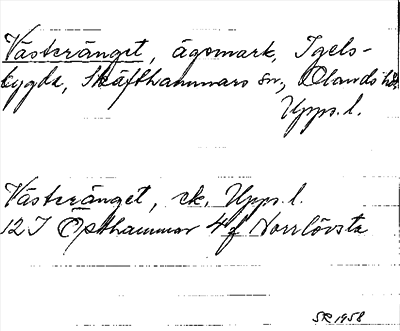 Västeränget, ägomark, Igels-
bygda, Skäfthammars sn, Olands hd
Upps. l.
Västeränget, ek, Upps. l.
12 I Östhammar 4f Norrlövsta
SR 1958